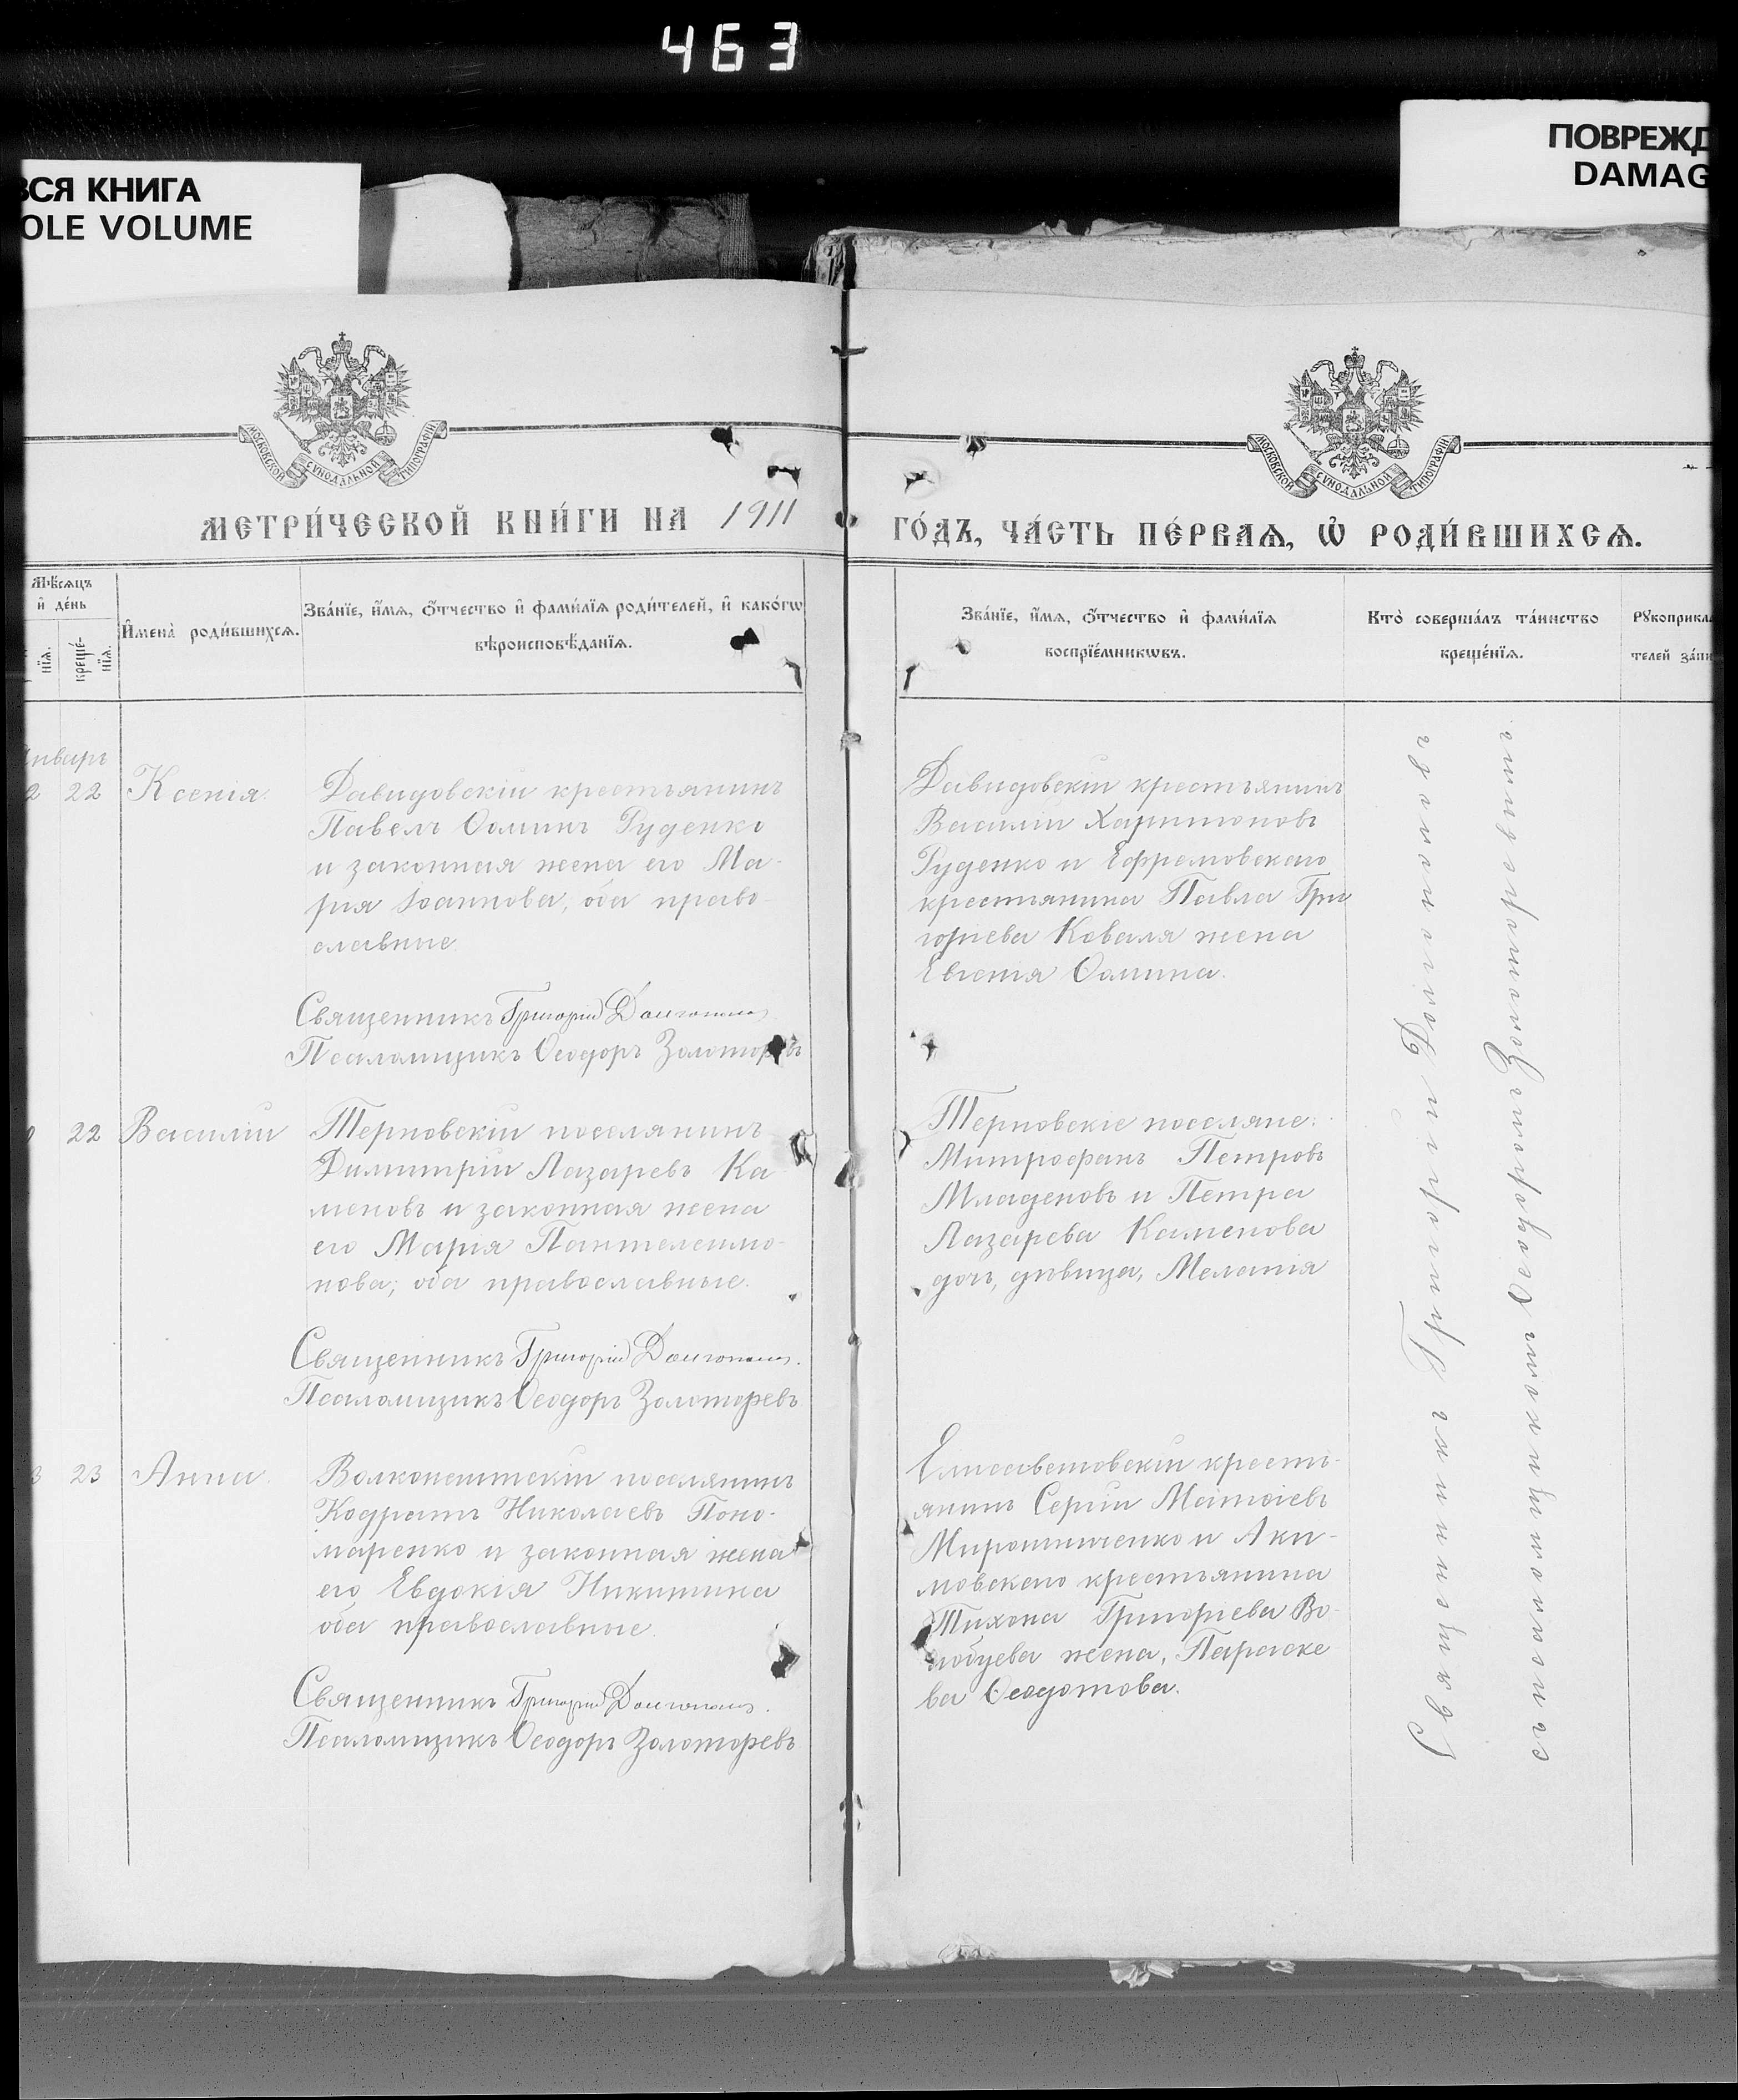 463
ВСЯ КНИГА
OLE VOLUME
ПОВРЕЖД
DAMAG
МОСКОВСКОЙ СѴНОДАЛЬНОЙ ТИПОГРАФІИ
МОСКОВСКОЙ СѴНОДАЛЬНОЙ ТИПОГРАФІИ
МЕТРИ́ЧЕСКОЙ КНИ́ГИ НА 1911
ГО́ДЪ, ЧА́СТЬ ПЕ́РВАѦ, Ѡ҆ РОДИ́ВШИХСѦ.
Мѣ́сѧцъ
и҆ де́нь
нїѧ.
креще́-
нїѧ.
И҆мена̀ роди́вшихсѧ.
Зва́нїе, и҆́мѧ, ѻ҆́тчество и҆ фами́лїѧ роди́телей, и҆ како́гѡ
вѣроисповѣ́данїѧ.
Зва́нїе, и҆́мѧ, ѻ҆́тчество и҆ фами́лїѧ
воспрїе́мникѡвъ.
Кто̀ соверша́лъ та́инство
креще́нїѧ.
Рꙋкоприкла
телей за́пи
Январь
2 22 Ксенія.
Давидовскій крестьянинъ
Павелъ Ѳоминъ Руденко
и законная жена его Ма-
рия Іоаннова, оба право-
славные.
Священникъ Григорій Долгополов
Псаломщикъ Ѳеодоръ Золоторевъ
Давидовскій крестьянинъ
Василій Харитоновъ
Руденко и Ефремовскаго
крестьянина Павла Гри
горіева Коваля жена
Евгенія Ѳомина.
22 Василій
Терновскій поселянинъ
Димитрій Лазаревъ Ка
меновъ и законная жена
его Марія Пантелеимо-
нова; оба православные.
Священникъ Григорій Долгополов.
Псаломщикъ Ѳеодоръ Золоторевъ
Терновскіе поселяне:
Митрофанъ Петровъ
Младеновъ и Петра
Лазарева Каменова
дочь, дѣвица, Меланія
3 23 Анна.
Волконештскій поселянинъ
Кодратъ Николаевъ Поно-
маренко и законная жена
его Евдокія Никитина
оба православные.
Священникъ Григорій Долгополов.
Псаломщикъ Ѳеодоръ Золоторевъ
Елисаветовскій кресть-
янинъ Сергій Матѳіевъ
Мирошниченко и Аки-
мовскаго крестьянина
Тихона Григорьева Во-
лобуева жена, Параске
ва Ѳеодотова.
Священникъ Григорій Долгополовъ
съ псаломщикомъ Ѳеодоромъ Золоторевымъ.